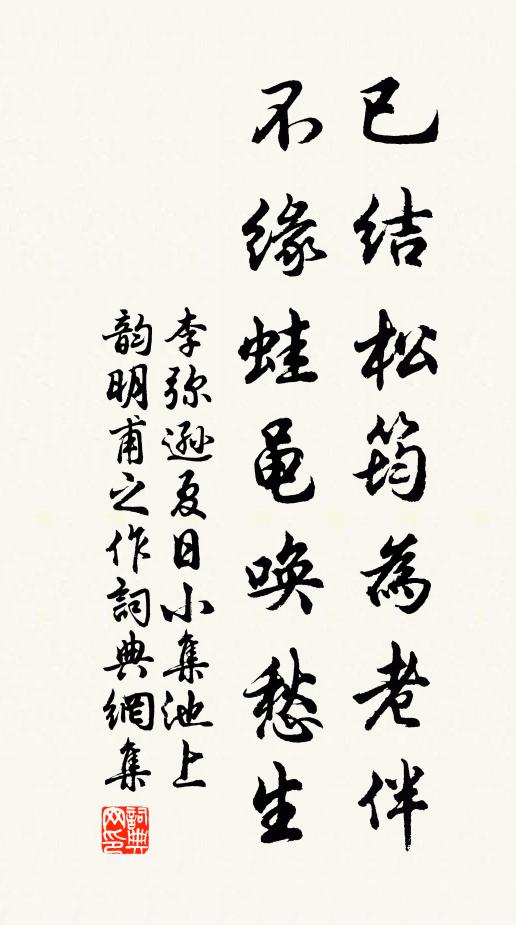 已结松筠為老伴
不缘蛙黽唤愁生
李弥遜夏日小集池上
韵明甫之作詞典網集
詞典网印